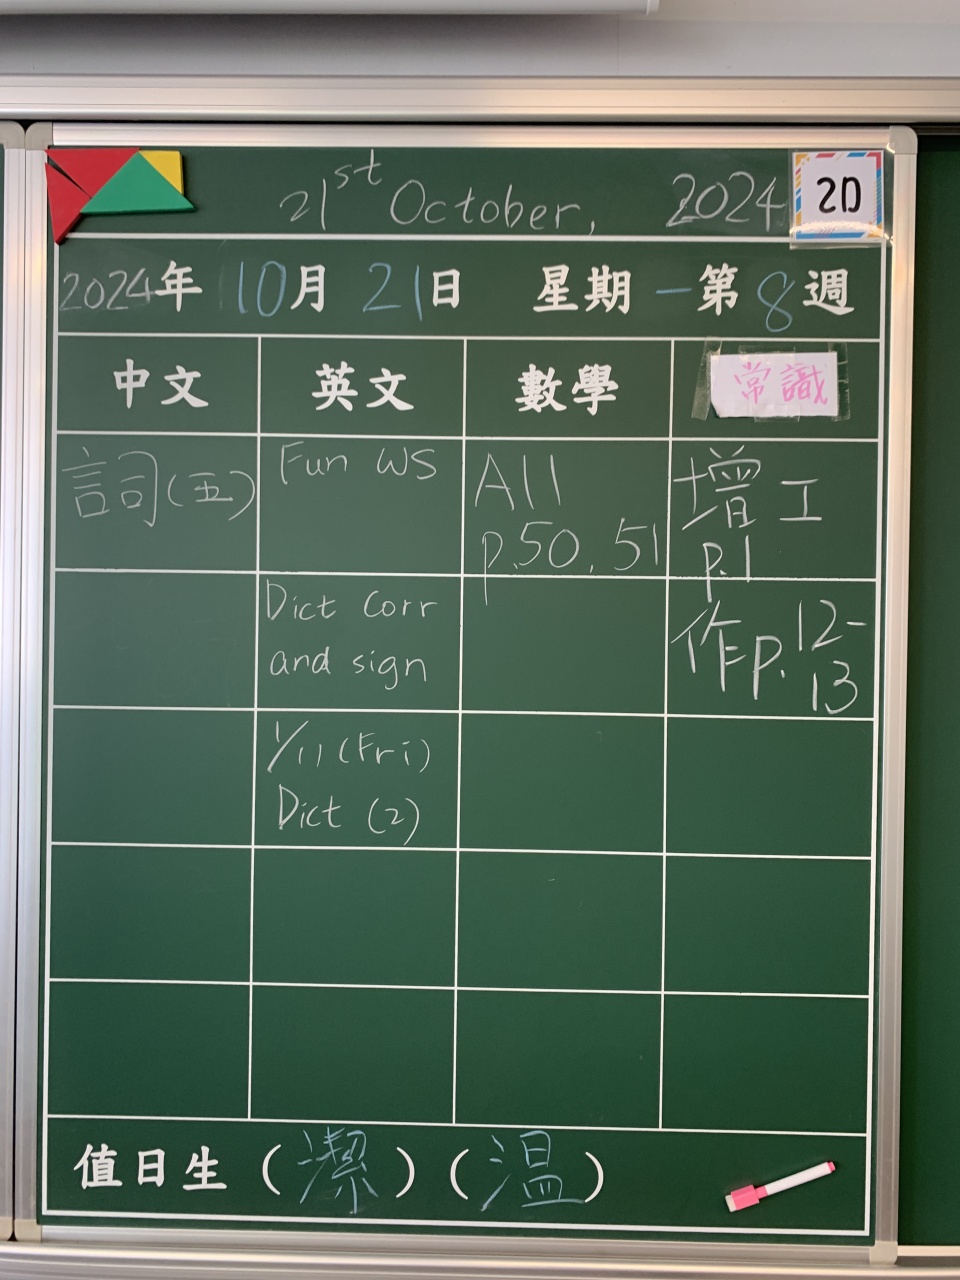 21st October, 2024 2D
2024年 10月 21日 星期一 第8週
中文 英文 數學 常識
言司(五) Fun WS All p.50, 51 增工 p.1
Dict Corr and sign 作p.12-13
1/11 (Fri) Dict (2)
值日生 (潔) (溫)